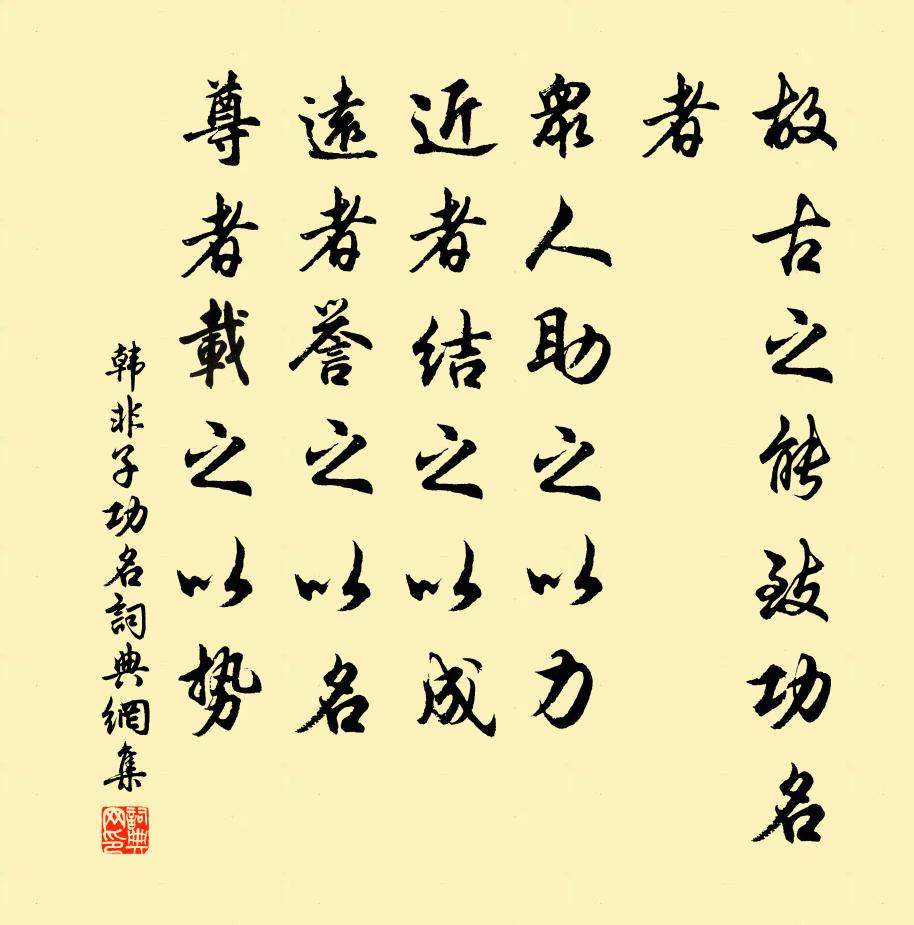 故古之能致功名
者
眾人助之以力
近者结之以成
遠者誉之以名
尊者載之以势
韩非子功名詞典網集
詞典
网印